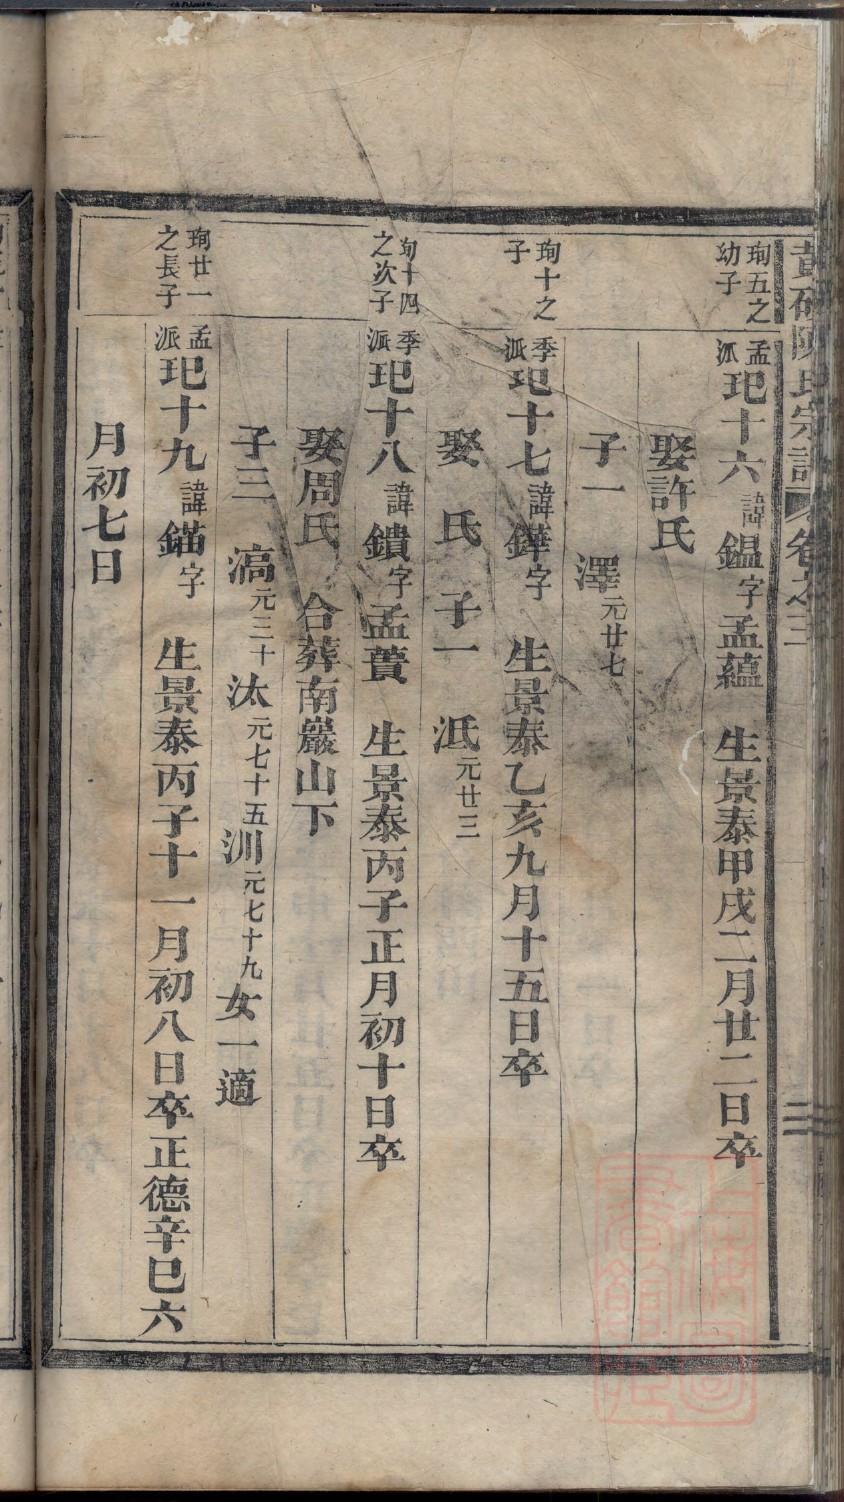 陳氏宗譜 卷之三
珣五之
幼子
孟派玘十六諱鎾字孟蘊 生景泰甲戌二月廿二日卒
娶許氏
子一 澤元廿七
珣十之
子
季派玘十七諱鏵字 生景泰乙亥九月十五日卒
娶 氏 子一 汦元廿三
珣十四
之次子
季派玘十八諱鐨字孟蕢 生景泰丙子正月初十日卒
娶周氏 合葬南巖山下
子三 滈元三十 汰元七十五 汌元七十九 女一適
珣廿一
之長子
孟派玘十九諱錨字 生景泰丙子十一月初八日卒正德辛巳六
月初七日
上海圖書館藏